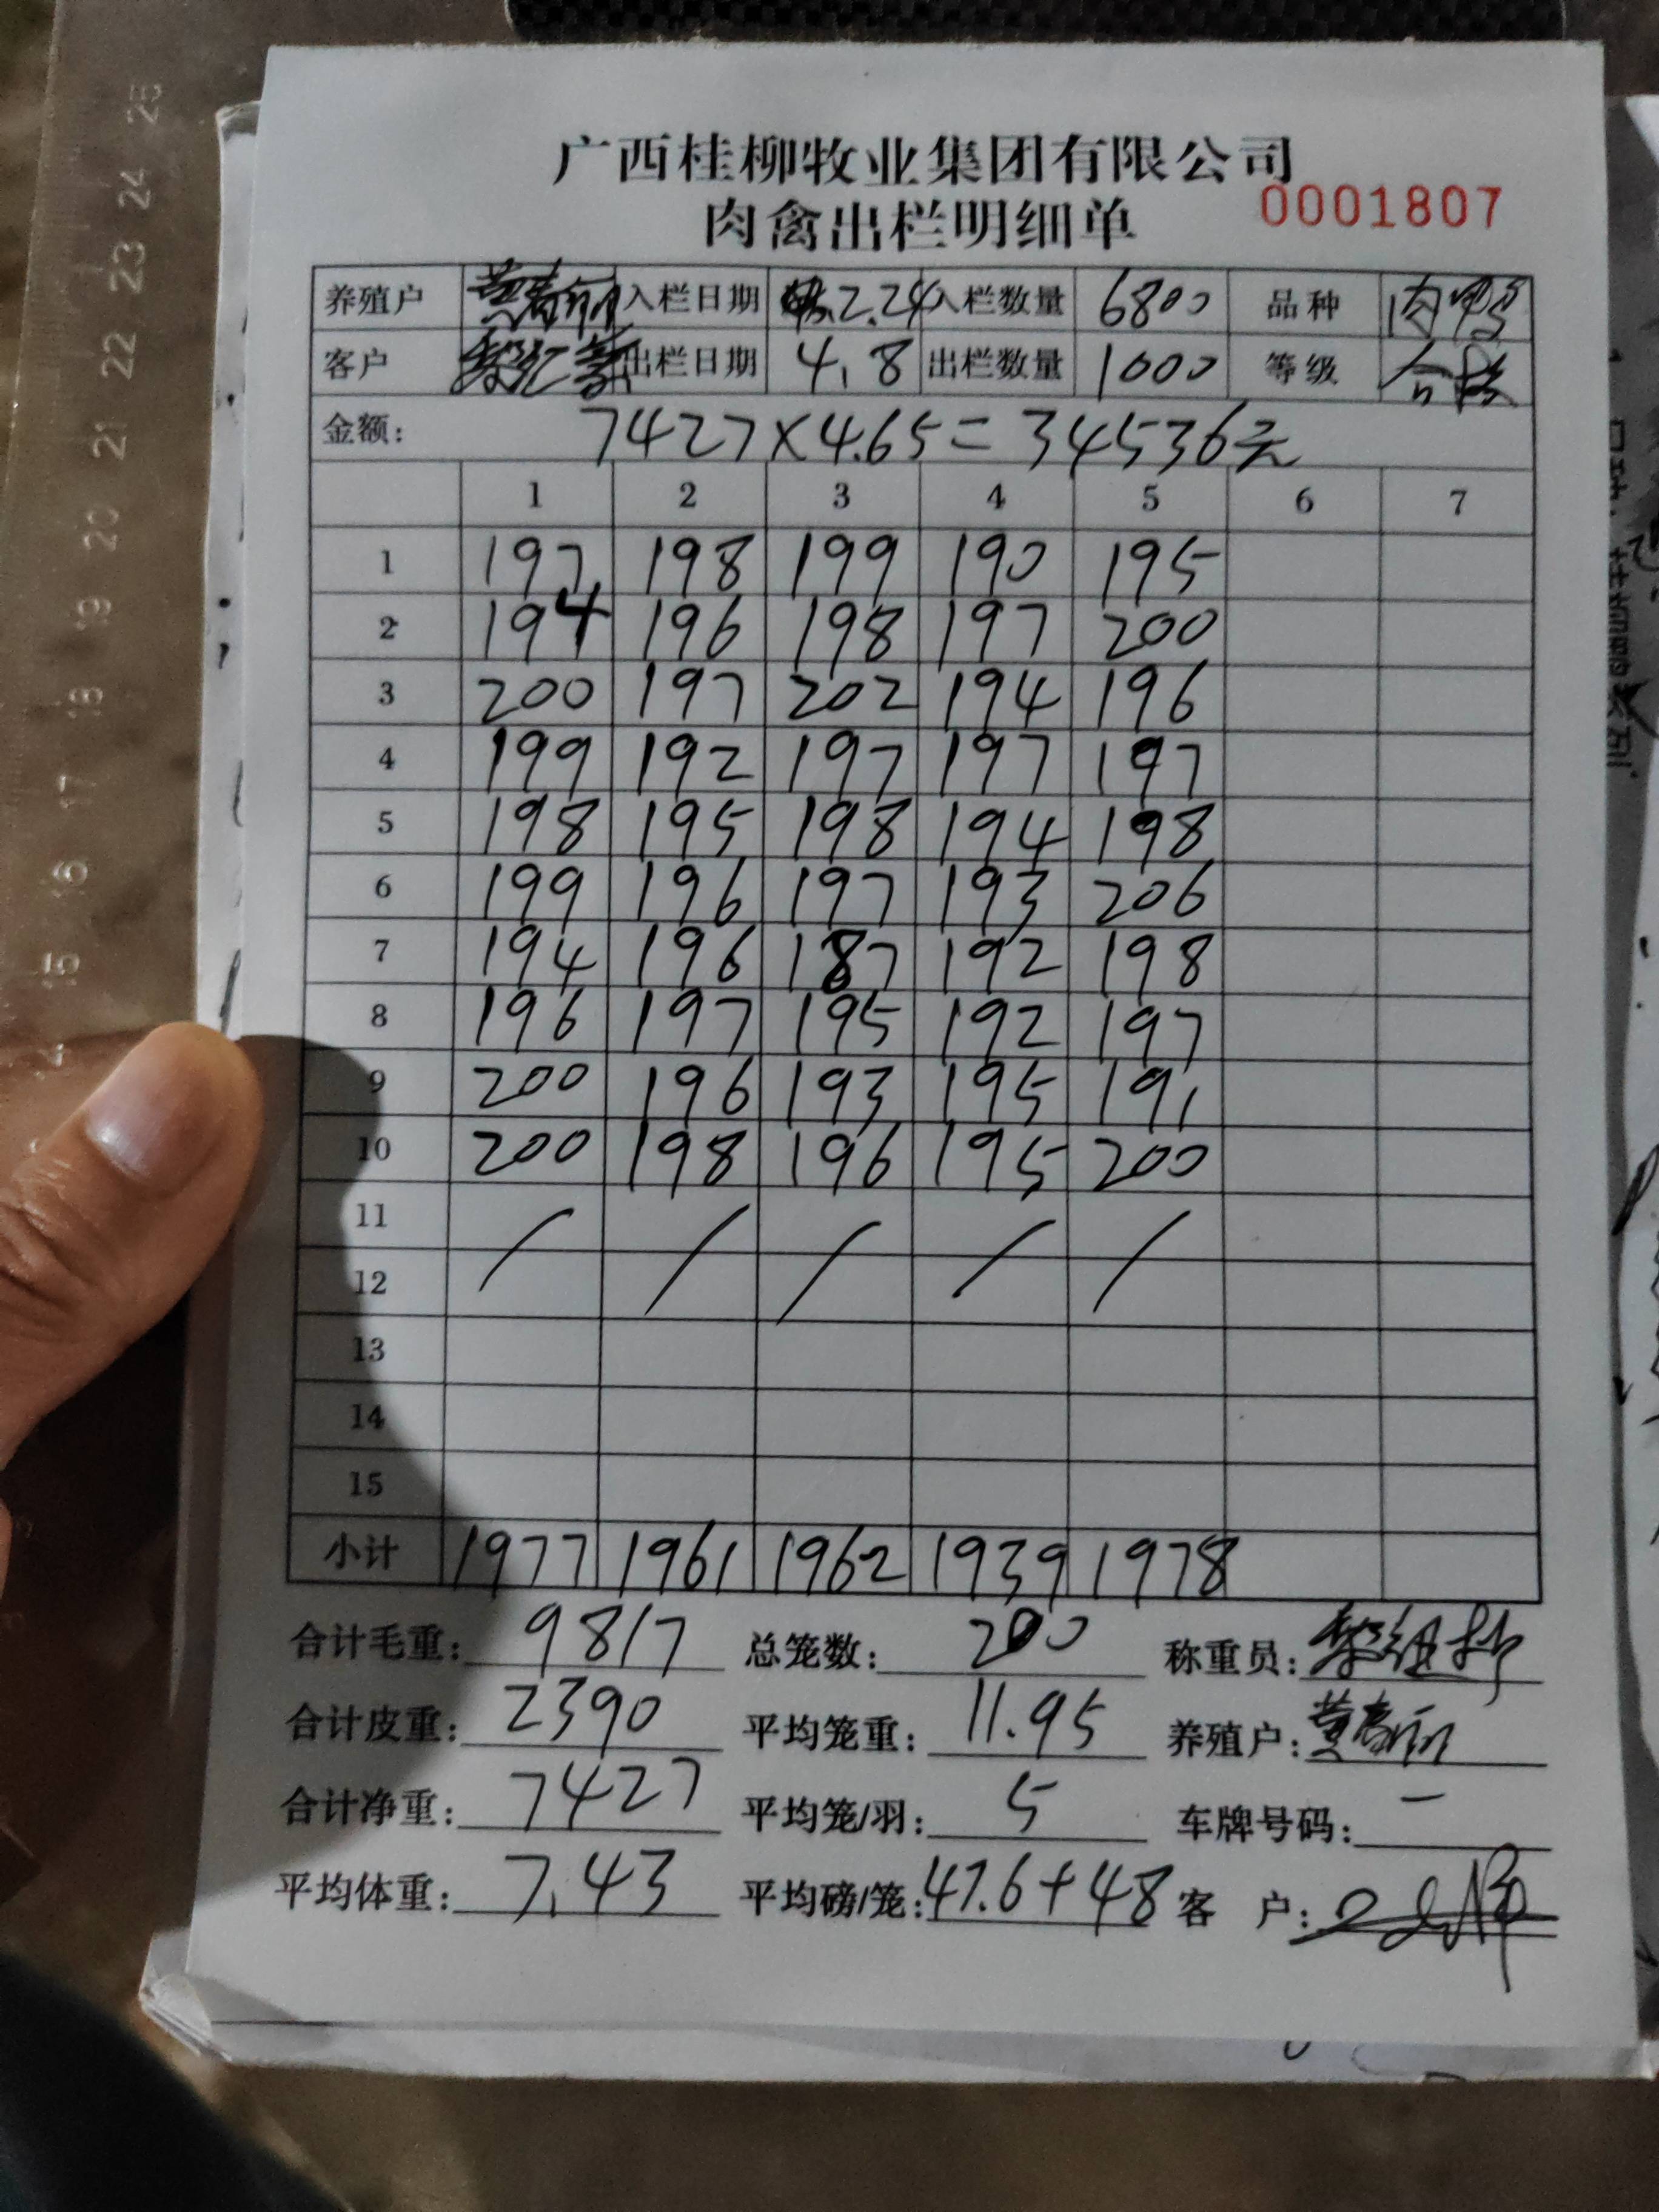 广西桂柳牧业集团有限公司
肉禽出栏明细单 0001807
养殖户 入栏日期 2.24 入栏数量 6800 品种 肉鸭
客户 出栏日期 4.8 出栏数量 1000 等级 合格
金额: 7427×4.65=34536元
1 2 3 4 5 6 7
1 197 198 199 190 195
2 194 196 198 197 200
3 200 197 202 194 196
4 199 192 197 197 197
5 198 195 198 194 198
6 199 196 197 193 206
7 194 196 187 192 198
8 196 197 195 192 197
9 200 196 193 195 191
10 200 198 196 195 200
11 / / / / /
12
13
14
15
小计 1977 1961 1962 1939 1978
合计毛重: 9817 总笼数: 200 称重员:
合计皮重: 2390 平均笼重: 11.95 养殖户:
合计净重: 7427 平均笼/羽: 5 车牌号码: —
平均体重: 7.43 平均磅/笼: 47.6+48 客 户:
25
24
23
22
21
20
19
18
17
16
15